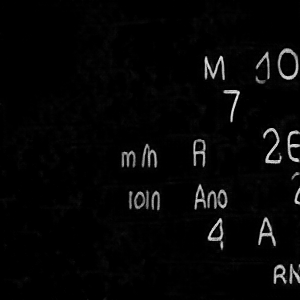 M 10
7
m/h R 2E
101n Ano
4 A
RN